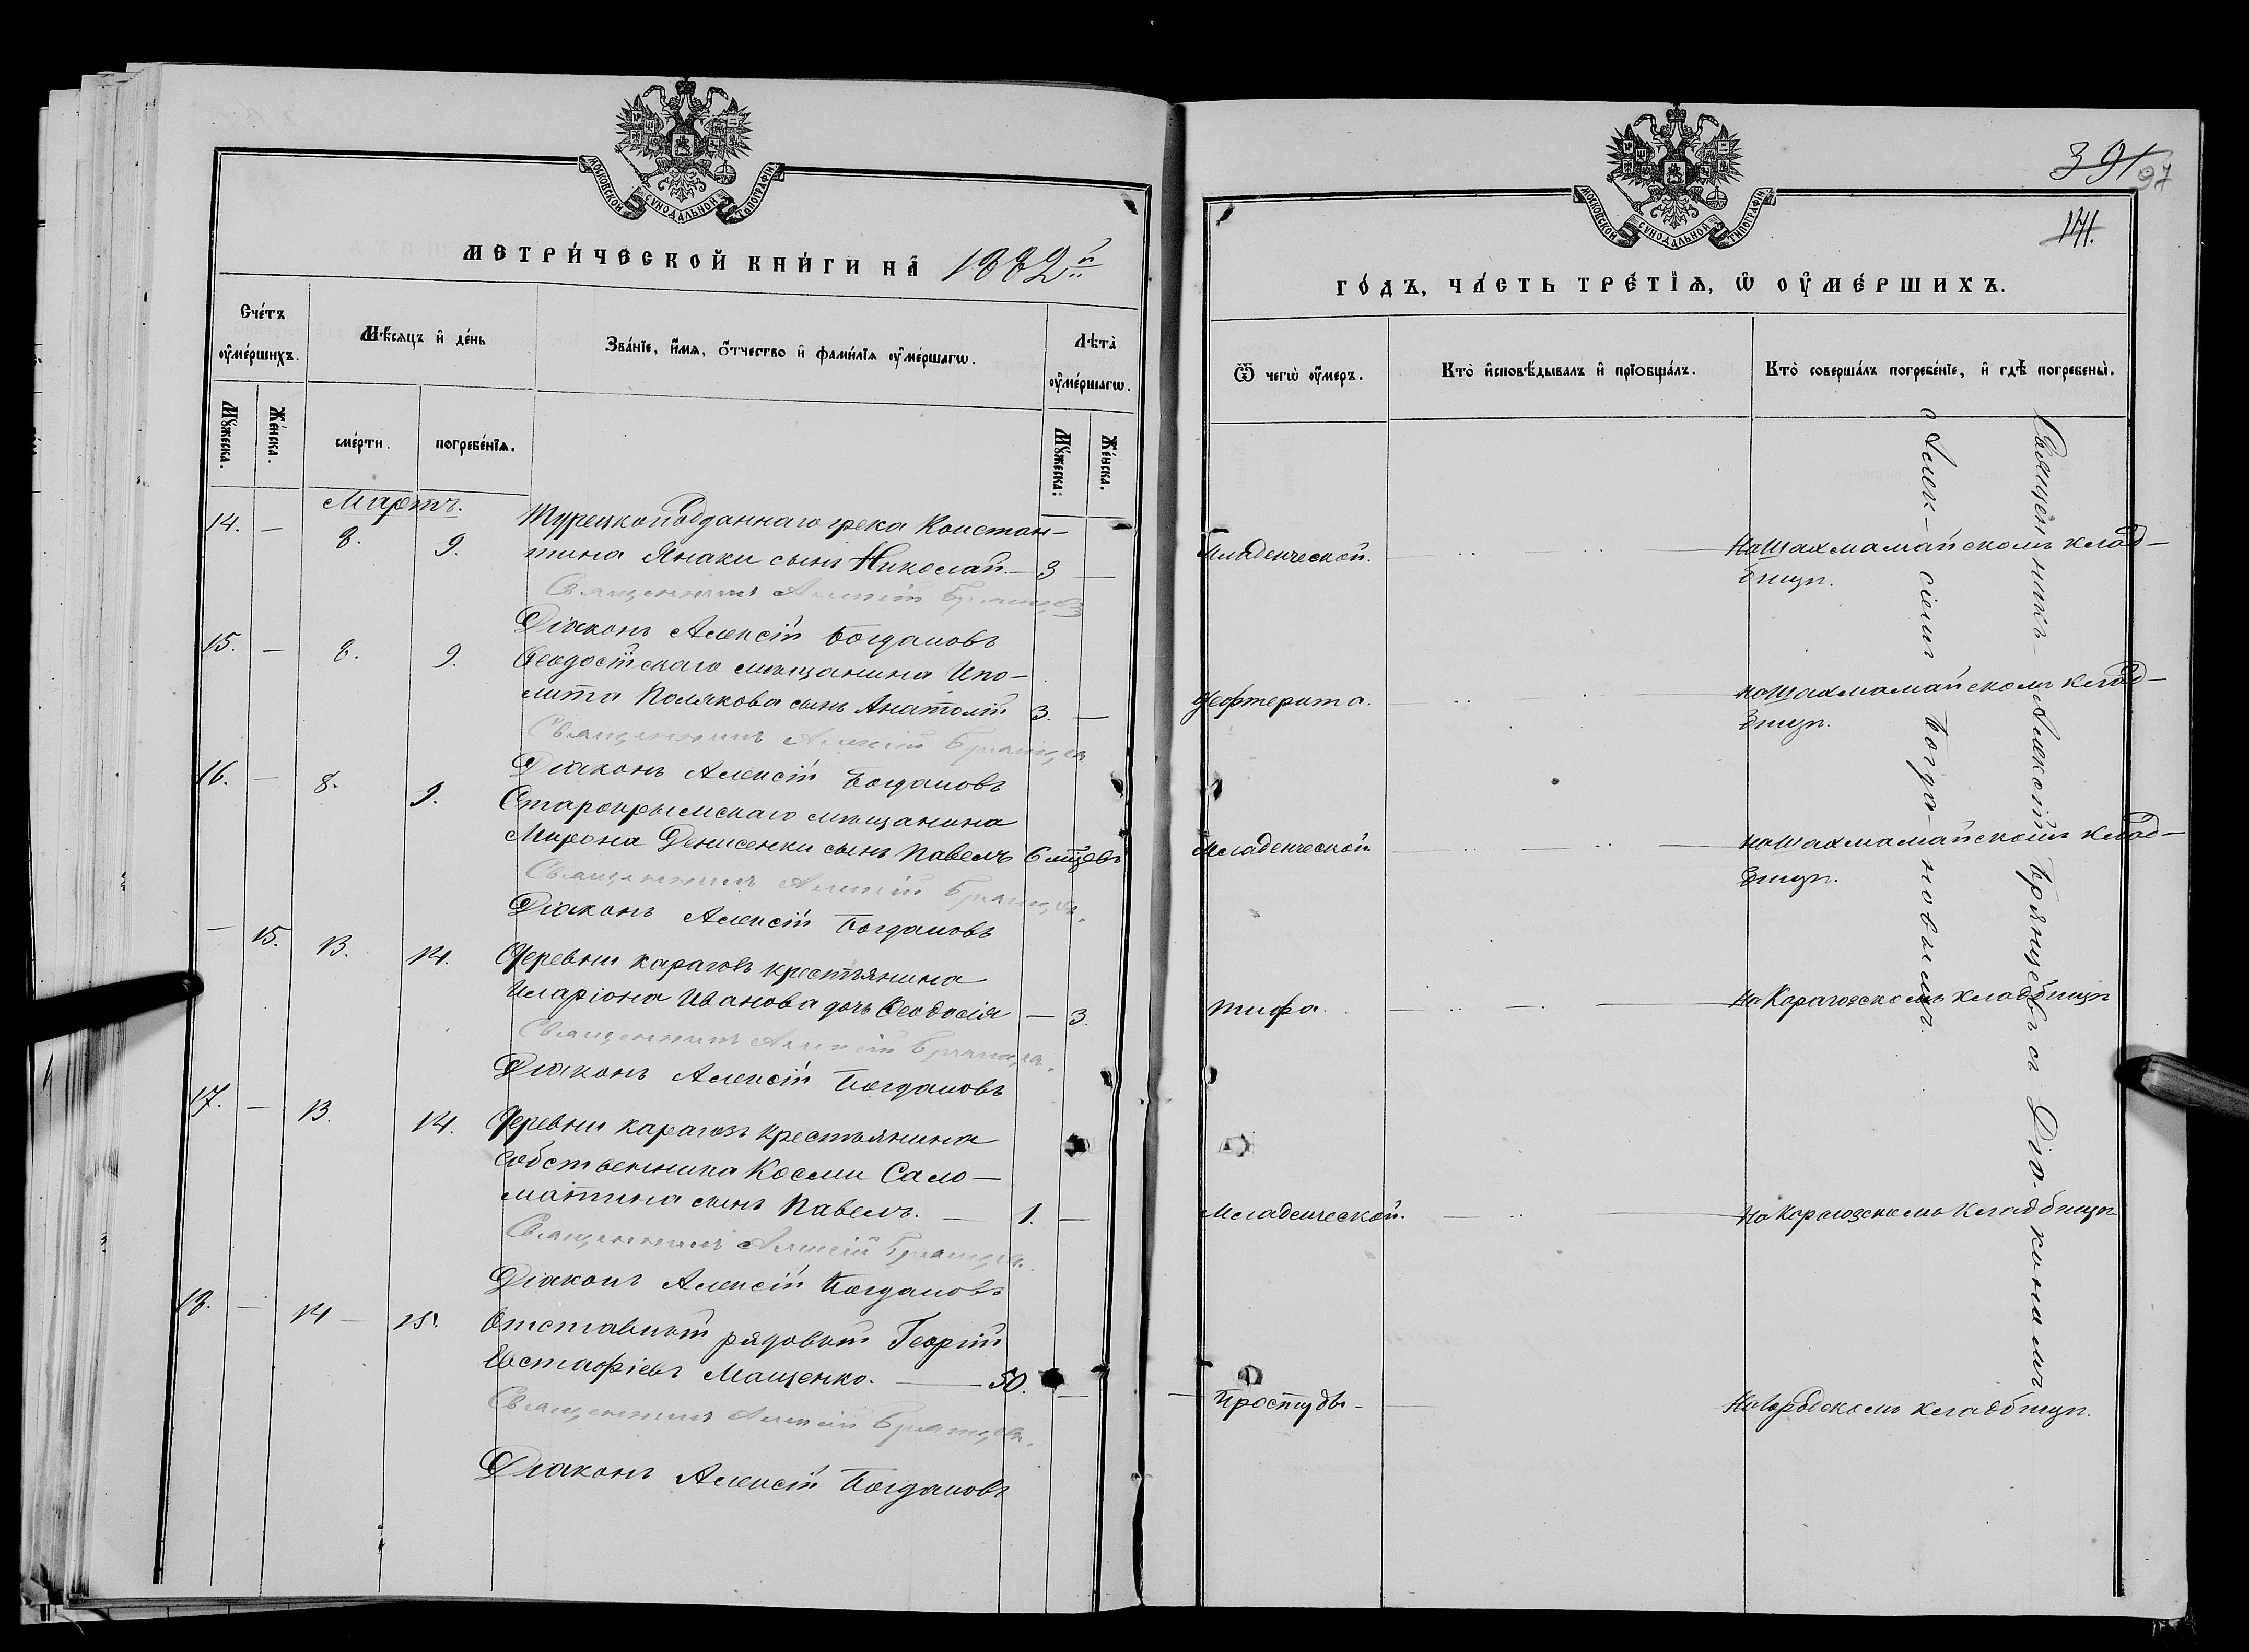 МОСКОВСКОЙ СѴНОДАЛЬНОЙ ТИПОГРАФІИ
МЕТРИ́ЧЕСКОЙ КНИ́ГИ НА̀ 1882й
Сче́тъ ᲂу҆ме́ршихъ.
Мѣ́сяцъ и҆ де́нь
Зва́нїе, и҆́мѧ, ѻ҆́тчество и҆ фами́лїѧ ᲂу҆ме́ршагѡ.
Лѣ́та̀ ᲂу҆ме́ршагѡ.
Мꙋ́жеска.
Же́нска.
сме́рти.
погребе́нїѧ.
Мꙋ́жеска.
Же́нска.
Мартъ.
14. — 8. 9. Турецкоподданнаго грека Констан-
тина Янаки сынъ Николай. — 3 —
Священникъ Алексій Брянцевъ
Діаконъ Алексій Богдановъ
15. — 8. 9. Ѳеодосійскаго мѣщанина Ипо-
лита Полякова сынъ Анатолій 3. —
Священникъ Алексій Брянцевъ
Діаконъ Алексій Богдановъ
16. — 8. 9. Старокрымскаго мѣщанина
Мирона Денисенки сынъ Павелъ 6 мѣсцевъ
Священникъ Алексій Брянцевъ.
Діаконъ Алексій Богдановъ
— 15. 13. 14. Деревни Карагозъ крестьянина
Иларіона Иванова дочь Ѳеодосія — 3.
Священникъ Алексій Брянцевъ.
Діаконъ Алексій Богдановъ
17. — 13. 14. Деревни Карагозъ крестьянина
собственника Косми Сало-
матина сынъ Павелъ. — 1. —
Священникъ Алексій Брянцевъ.
Діаконъ Алексій Богдановъ
18. — 14 — 15. Отставной рядовой Георгій
Евстафіевъ Мащенко. — 50. —
Священникъ Алексій Брянцевъ.
Діаконъ Алексій Богдановъ
391
97
141.
МОСКОВСКОЙ СѴНОДАЛЬНОЙ ТИПОГРАФІИ
ГО́ДЪ, ЧА́СТЬ ТРЕ́ТЇѦ, Ѡ҆ ОУ҆МЕ́РШИХЪ.
Ѿ чегѡ̀ ᲂу҆́меръ.
Кто̀ и҆сповѣ́дывалъ и҆ прїобща́лъ.
Кто̀ соверша́лъ погребе́нїе, и҆ гдѣ̀ погребены̀.
Младенческой. — На Шахмамайскомъ клад-
бищѣ.
Дефтерита. — на Шахмамайскомъ клад-
бищѣ.
Младенческой — на Шахмамайскомъ клад-
бищѣ.
Тифа. — На Карагозскомъ кладбищѣ
Младенческой. — На Карагозскомъ кладбищѣ
Простуды — На городскомъ кладбищѣ.
Священникъ — Алексій Брянцевъ съ Діакономъ
Алек-сіемъ Богда-новымъ.